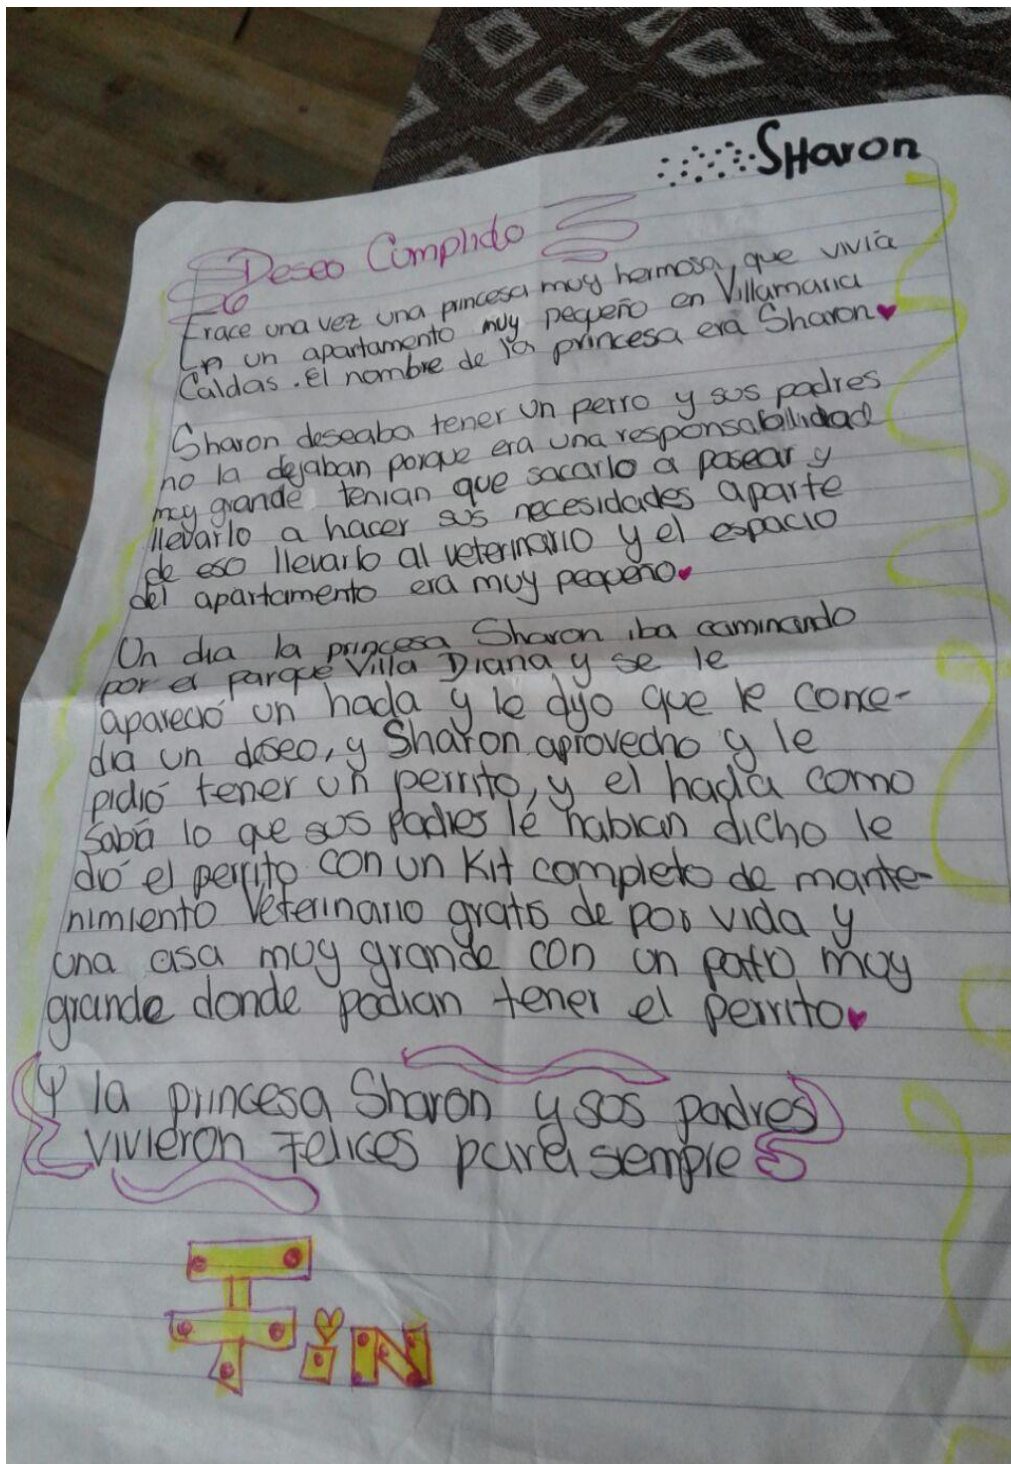 Sharon
Deseo Cumplido
Erace una vez una princesa muy hermosa, que vivía
En un apartamento muy pequeño en Villamaria
Caldas. El nombre de la princesa era Sharon
Sharon deseaba tener un perro y sus padres
no la dejaban porque era una responsabilidad
muy grande tenian que sacarlo a pasear y
llevarlo a hacer sus necesidades aparte
de eso llevarlo al veterinario y el espacio
del apartamento era muy pequeño
Un dia la princesa Sharon iba caminando
por el parque Villa Diana y se le
apareció un hada y le dijo que le conce-
dia un deseo, y Sharon aprovecho y le
pidió tener un perrito, y el hada como
Sabia lo que sus padres le habian dicho le
dió el perrito con un Kit completo de mante-
nimiento Veterinario gratis de por vida y
una casa muy grande con un patio muy
grande donde podian tener el perrito
Y la princesa Sharon y sus padres
vivieron Felices para siempre
FiN